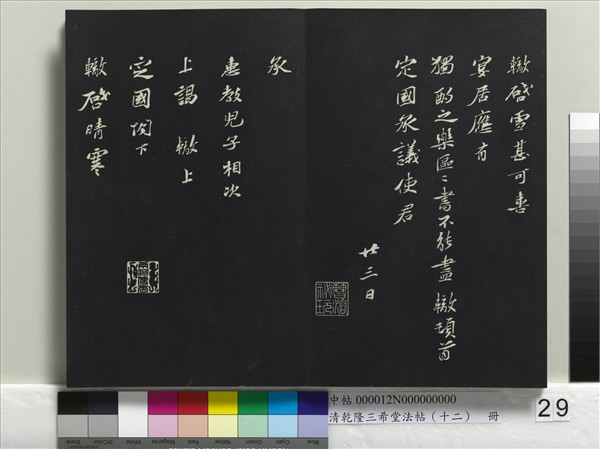 轍啓雪甚可喜
宴居應有
獨酌之樂區〻書不能盡 轍頓首
定國承議使君
廿三日
承
惠教兒子相次
上謁 轍上
定國閤下
轍啓晴寒
中帖 000012N000000000
清乾隆三希堂法帖(十二) 冊
29
Black
3/Color
White
Magenta
Red
Yellow
Green
Cyan
Blue